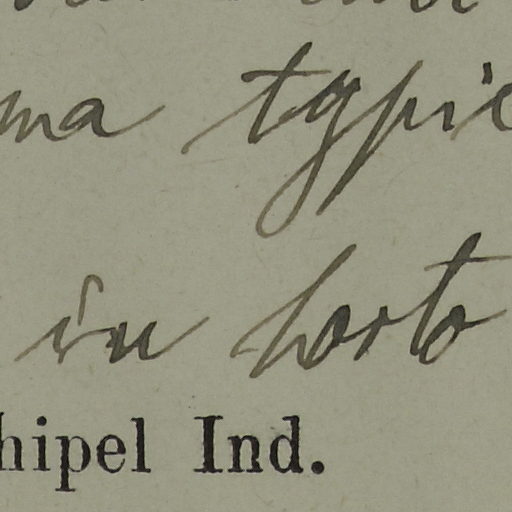 ma typic
in horto
hipel Ind.